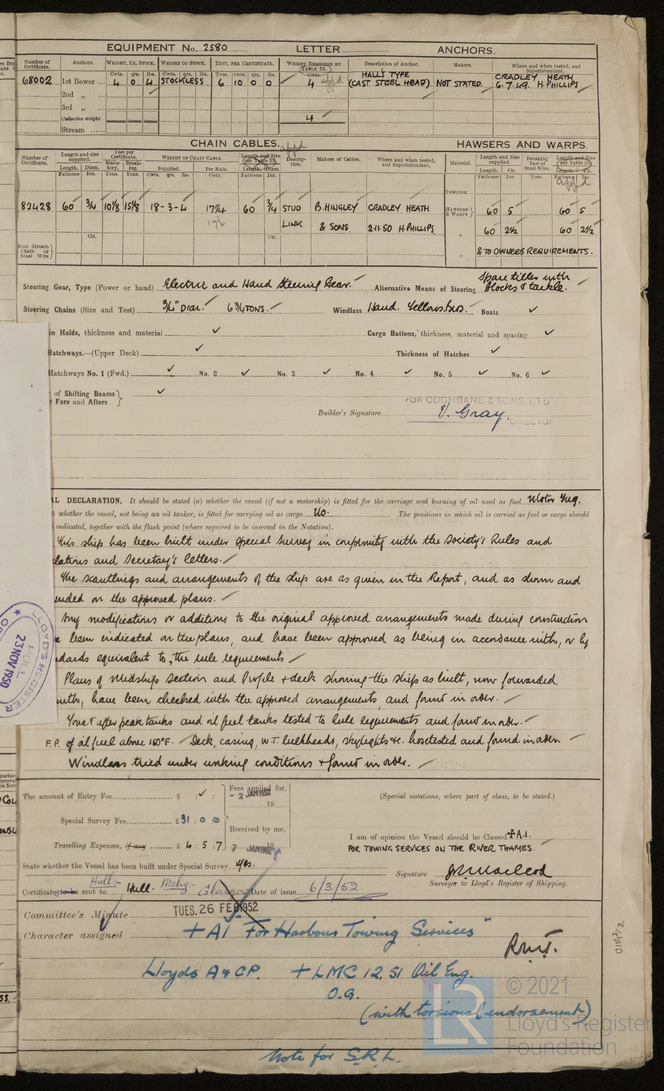 EQUIPMENT No. 2580 LETTER ANCHORS.
Number of Certificate. Anchors. WEIGHT, EX. STOCK. WEIGHT OF STOCK. TEST, PER CERTIFICATE. WEIGHT REQUIRED BY TABLE 53. Description of Anchor. Makers. Where and when tested, and Superintendent.
Cwts. qrs. lbs. Cwts. qrs. lbs. Tons. cwts. qrs. lbs. Cwts.
68002 1st Bower 4 0 4 STOCKLESS 6 10 0 0 4 appd HALL'S TYPE (CAST STEEL HEAD) NOT STATED. CRADLEY HEATH 6.7.49. H. PHILLIPS
2nd „
3rd „
Collective weight 4
Stream
CHAIN CABLES. appd HAWSERS AND WARPS.
Number of Certificate. Length and size supplied. Test per Certificate. WEIGHT OF CHAIN CABLE. Length and Size per Table 53. Description. Makers of Cables. Where and when tested, and Superintendent. Material. Length and Size supplied. Breaking Test of Steel Wire. Length and Size per Table 53.
Length. Diam. Statutory. Breaking. Supplied. Per Rule. Length. Diam. Length. Cir. appd
Fathoms Ins. Tons. Tons. Cwts. qrs. lbs. Cwts. Fathoms Ins. Fathoms Ins. Tons. Fathoms Ins.
TOWLINE
82428 60 3/4 10 1/8 15 1/8 18-3-4 17 1/4 60 3/4 STUD B. HINGLEY CRADLEY HEATH HAWSERS & WARPS 60 5 60 5
LINK & SONS 2.11.50 H. PHILLIPS „ 60 2 1/2 60 2 1/2
Cir. Cir.
Iron Stream Chain or Steel Wire „ & TO OWNERS REQUIREMENTS.
Steering Gear, Type (Power or hand) Electric and Hand Steering Gear. Alternative Means of Steering Spare tiller with blocks & tackle.
Steering Chains (Size and Test) 9/16" DIAR. 6 3/4 TONS. Windlass Hand. Boats ✓
in Holds, thickness and material ✓ Cargo Battens, thickness, material and spacing ✓
Hatchways.—(Upper Deck) ✓ Thickness of Hatches ✓
Hatchways No. 1 (Fwd.) ✓ No. 2 ✓ No. 3 ✓ No. 4 ✓ No. 5 ✓ No. 6 ✓
of Shifting Beams
Fore and Afters } ✓
FOR COCHRANE & SONS, LTD
Builder's Signature V. Gray.
DIRECTOR
L DECLARATION. It should be stated (a) whether the vessel (if not a motorship) is fitted for the carriage and burning of oil used as fuel Motor Tug.
whether the vessel, not being an oil tanker, is fitted for carrying oil as cargo No. The positions in which oil is carried as fuel or cargo should
indicated, together with the flash point (where required to be inserted in the Notation).
This ship has been built under Special Survey in conformity with the Society's Rules and
Secretary's letters.
The scantlings and arrangements of the ship are as given in the Report, and as shown and
on the approved plans.
Any modifications or additions to the original approved arrangements made during construction
been indicated on the plans, and have been approved as being in accordance with, or by
equivalent to, the rule requirements
Plans of Midship Section and Profile & deck showing the ship as built, now forwarded
have been checked with the approved arrangements, and found in order.
Fore & after peak tanks and oil fuel tanks tested to rule requirements and found in order.
F.P. of oil fuel above 150°F. Deck, casing, W.T. bulkheads, skylights &c. hosetested and found in order.
Windlass tried under working conditions & found in order.
LLOYDS REGISTER
23 NOV 1950
HULL
The amount of Entry Fee £ ✓ : Fees applied for, (Special notations, where part of class, to be stated.)
- 2 JAN 1952
19
Special Survey Fee £ 31 : 0 0
Received by me, I am of opinion the Vessel should be Classed ✠ A.1.
Travelling Expenses, if any £ 4 : 5 : 7 FOR TOWING SERVICES ON THE RIVER THAMES.
19
State whether the Vessel has been built under Special Survey Yes. Signature
Surveyor to Lloyd's Register of Shipping.
Hull.
Certificate to be sent to Hull. Glasgow Date of issue 6/3/52
Committee's Minute TUES. 26 FEB 1952
Character assigned + A1 "For Harbour Towing Services"
Lloyds A & CP. + LMC 12,51 Oil Eng.
O.G.
(with torsional endorsement)
Note for S.R.L.
© 2021
LR Lloyd's Register
Foundation